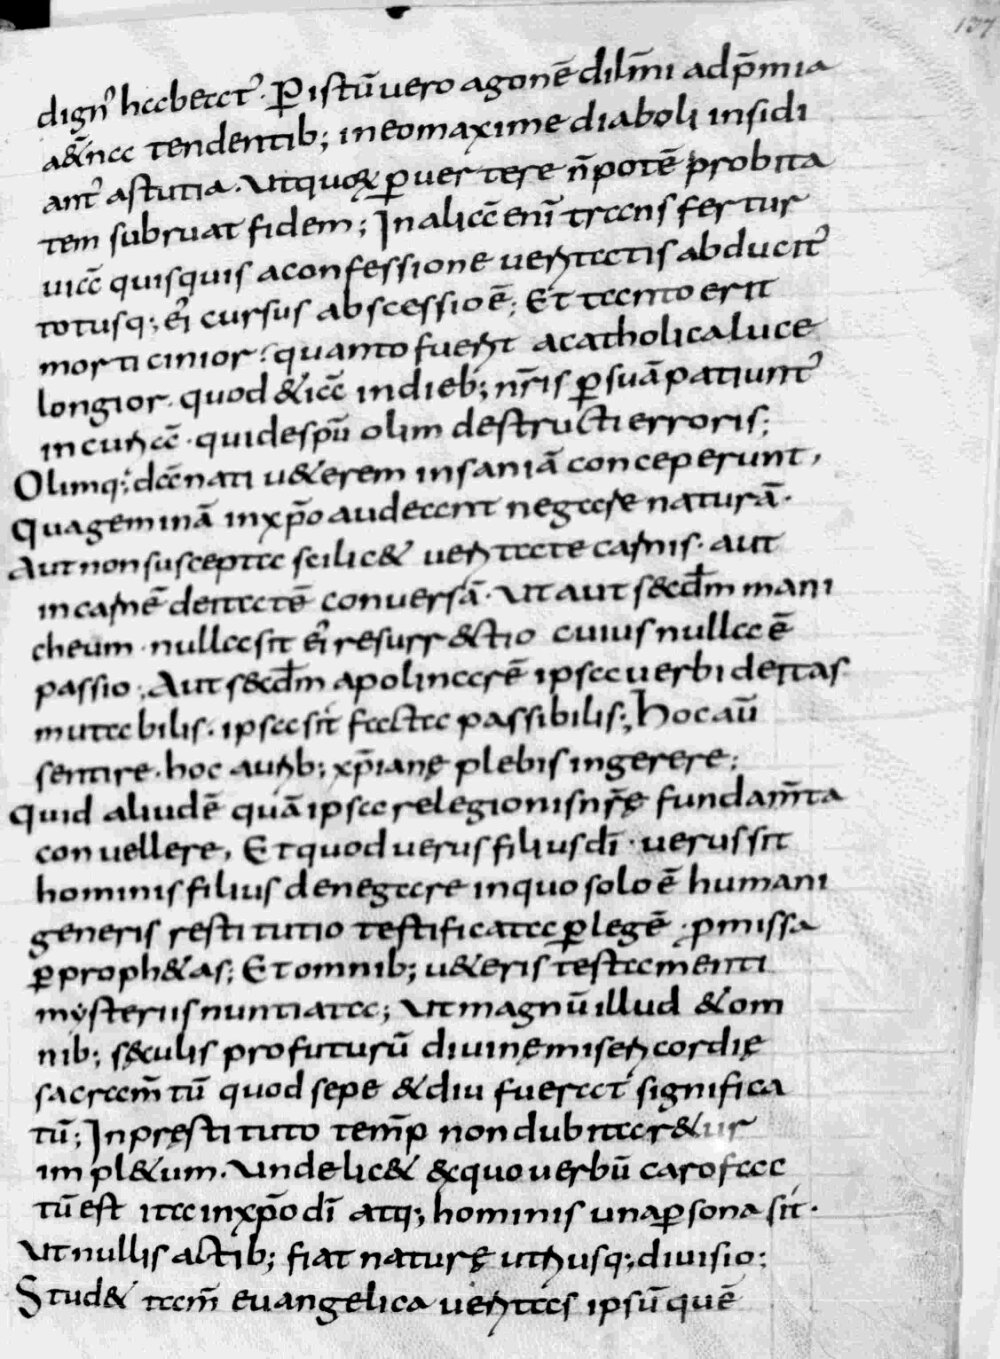 137
dign᷒ habeat᷒. P̲istū vero agonē dil̄mi ad p̄mia
a&̄na tendentib; in eo maxime diaboli insidi
ant᷒ astutia. Ut quoꝝ ꝑvertere n̄ potē probita
tem subruat fidem; In aliā enī trans fertur
viā quisquis a confessione veritatis abducit᷒
totusq; ei᷒ cursus abscessio ē; Et tanto erit
morti cinior. quanto fuerit a catholica luce
longior. quod & iā in dieb; nr̄is ꝑ suā patiunt᷒
incuriā. qui despū olim destructi erroris;
Olimq; dānati u&erem insaniā conceperunt,
Qua geminā in xp̄o audeant negare naturā.
Aut non suscepta scilic& veritate carnis. aut
in carnē deitatē conversā. Ut aut s&cd̄m mani
cheum. nulla sit ei᷒ resurr&ctio cuius nulla ē
passio; Aut s&cd̄m apolinarē ipsa verbi deitas
mutabilis. ipsa sit facta passibilis; Hoc aū
sentire. hoc aurib; xp̄ianę plebis ingerere;
Quid aliud ē quā ipsa relegionis nr̄ę fundam̄ta
convellere, Et quod verus filius dī. verus sit
hominis filius denegare in quo solo ē humani
generis restitutio testificata ꝑ legē. p̄missa
ꝑ proph&as; Et omnib; u&eris testamenti
mysteriis nuntiata; Ut magnū illud & om
nib; sęculis profuturū divinę misericordię
sacram̄tū quod sepe & diu fuerat significa
tū; In pręstituto temp̄ non dubitar&ur
impl&um. Unde lic& ex quo verbū caro fac
tū est ita in xp̄o dī atq; hominis una ꝑsona sit.
Ut nullis actib; fiat naturę utriusq; divisio;
Stud& tam̄ evangelica veritas ipsū quē